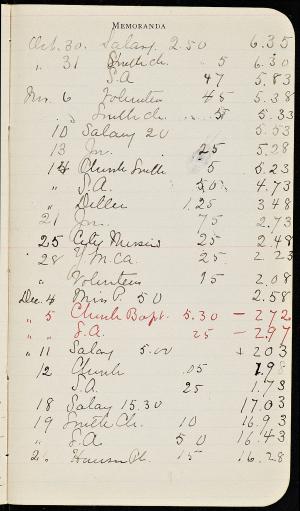 MEMORANDA
Oct. 30. Salary 2.50 6.35
" 31 Smith Ch. 5 6.30
S.A 47 5.83
Nov. 6 Volunteers 45 5.38
" Smith Ch. 5 5.33
10 Salary 20 5.53
13 25 5.28
14 Church Smith 5 5.23
" S.A. 50 4.73
" 1.25 3 48
21 75 2.73
25 City Mission 25 2 48
28 Y.M.C.A. 25 2 23
" Volunteers 15 2.08
Dec. 4 Miss P. 50 2.58
" 5 Church Bapt. 5.30 - 2.72
" " S.A. 25 - 2.97
" 11 Salary 5.00 + 2 03
12 Church .05 1.98
S.A. 25 1.73
18 Salary 15.30 17.03
19 Smith Ch. 10 16.93
" S.A. 50 16.43
15 16.28